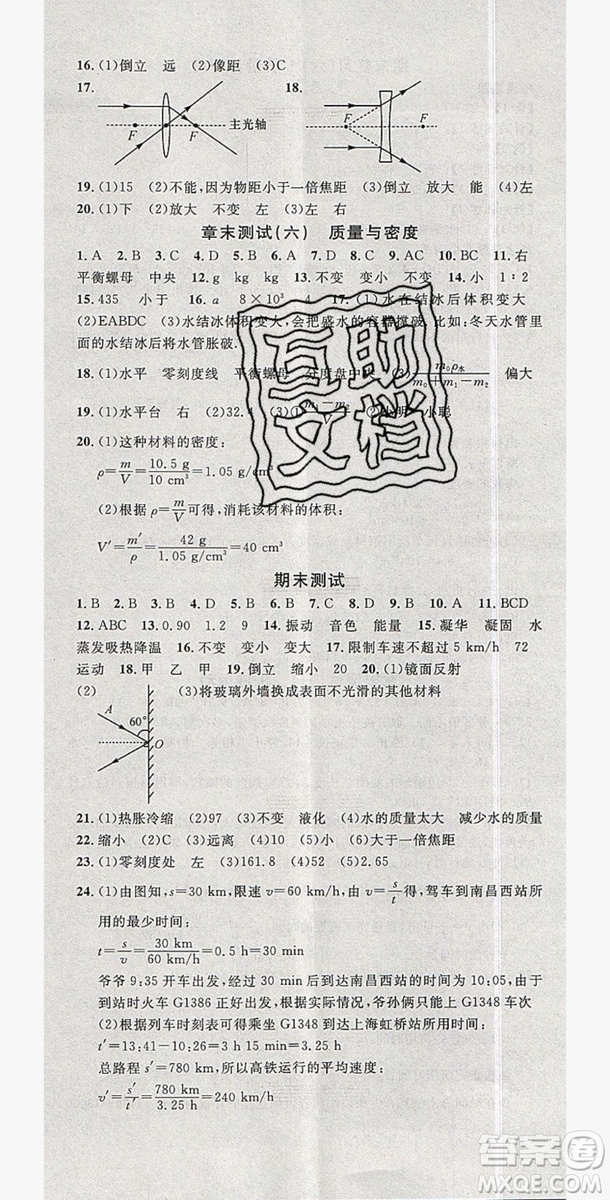 16. (1)倒立 远 (2)像距 (3)C
17. 18.
F F 主光轴
F F
19. (1)15 (2)不能,因为物距小于一倍焦距 (3)倒立 放大 能 (4)左
20. (1)下 (2)放大 不变 左 (3)左 右
章末测试(六) 质量与密度
1. A 2. B 3. C 4. D 5. B 6. A 7. D 8. A 9. AC 10. BC 11. 右
平衡螺母 中央 12. g kg kg 13. 不变 变小 不变 14. 小 1∶2
15. 435 小于 16. a 8×10³ 4 17. (1)水在结冰后体积变大
(2)EABDC (3)水结冰体积变大,会把盛水的容器撑破.比如:冬天水管里面的水结冰后将水管胀破.
18. (1)水平 零刻度线 平衡螺母 分度盘中央 (3) m₀ρ水/(m₀+m₁−m₂) 偏大
19. (1)水平台 右 (2)32.4 (3)① (m₁−m₂)/V ②小明 小聪
20. (1)这种材料的密度:
ρ=m/V=10.5 g/10 cm³=1.05 g/cm³
(2)根据 ρ=m/V 可得,消耗该材料的体积:
V′=m′/ρ=42 g/1.05 g/cm³=40 cm³
期末测试
1. B 2. B 3. D 4. D 5. B 6. C 7. B 8. D 9. C 10. A 11. BCD
12. ABC 13. 0.90 1.2 9 14. 振动 音色 能量 15. 凝华 凝固 水
蒸发吸热降温 16. 不变 变小 变大 17. 限制车速不超过 5 m/s 72
运动 18. 甲 乙 甲 19. 倒立 缩小 20 20. (1)镜面反射
(2) (3)将玻璃外墙换成表面不光滑的其他材料
A 60° O
21. (1)热胀冷缩 (2)97 (3)不变 液化 (4)水的质量太大 减少水的质量
22. 缩小 (2)C (3)远离 (4)10.0 (5)小 (6)大于一倍焦距
23. (1)零刻度处 左 (2)③ (3)161.8 (4)52 (5)2.65
24. (1)由图知,s=30 km,限速 v=60 km/h,由 v=s/t 得,驾车到南昌西站所
用的最少时间:
t=s/v=30 km/60 km/h=0.5 h=30 min
爷爷 9:35 开车出发,经过 30 min 后到达南昌西站的时间为 10:05,由于
到站时火车 G1386 正好出发,根据实际情况,爷孙俩能上 G1348 车次
(2)根据列车时刻表可得乘坐 G1348 到达上海虹桥站所用时间:
t′=13:41−10:26=3 h 15 min=3.25 h
总路程 s′=780 km,所以高铁运行的平均速度:
v′=s′/t′=780 km/3.25 h=240 km/h
互助
文档
答案圈
MXQE.COM